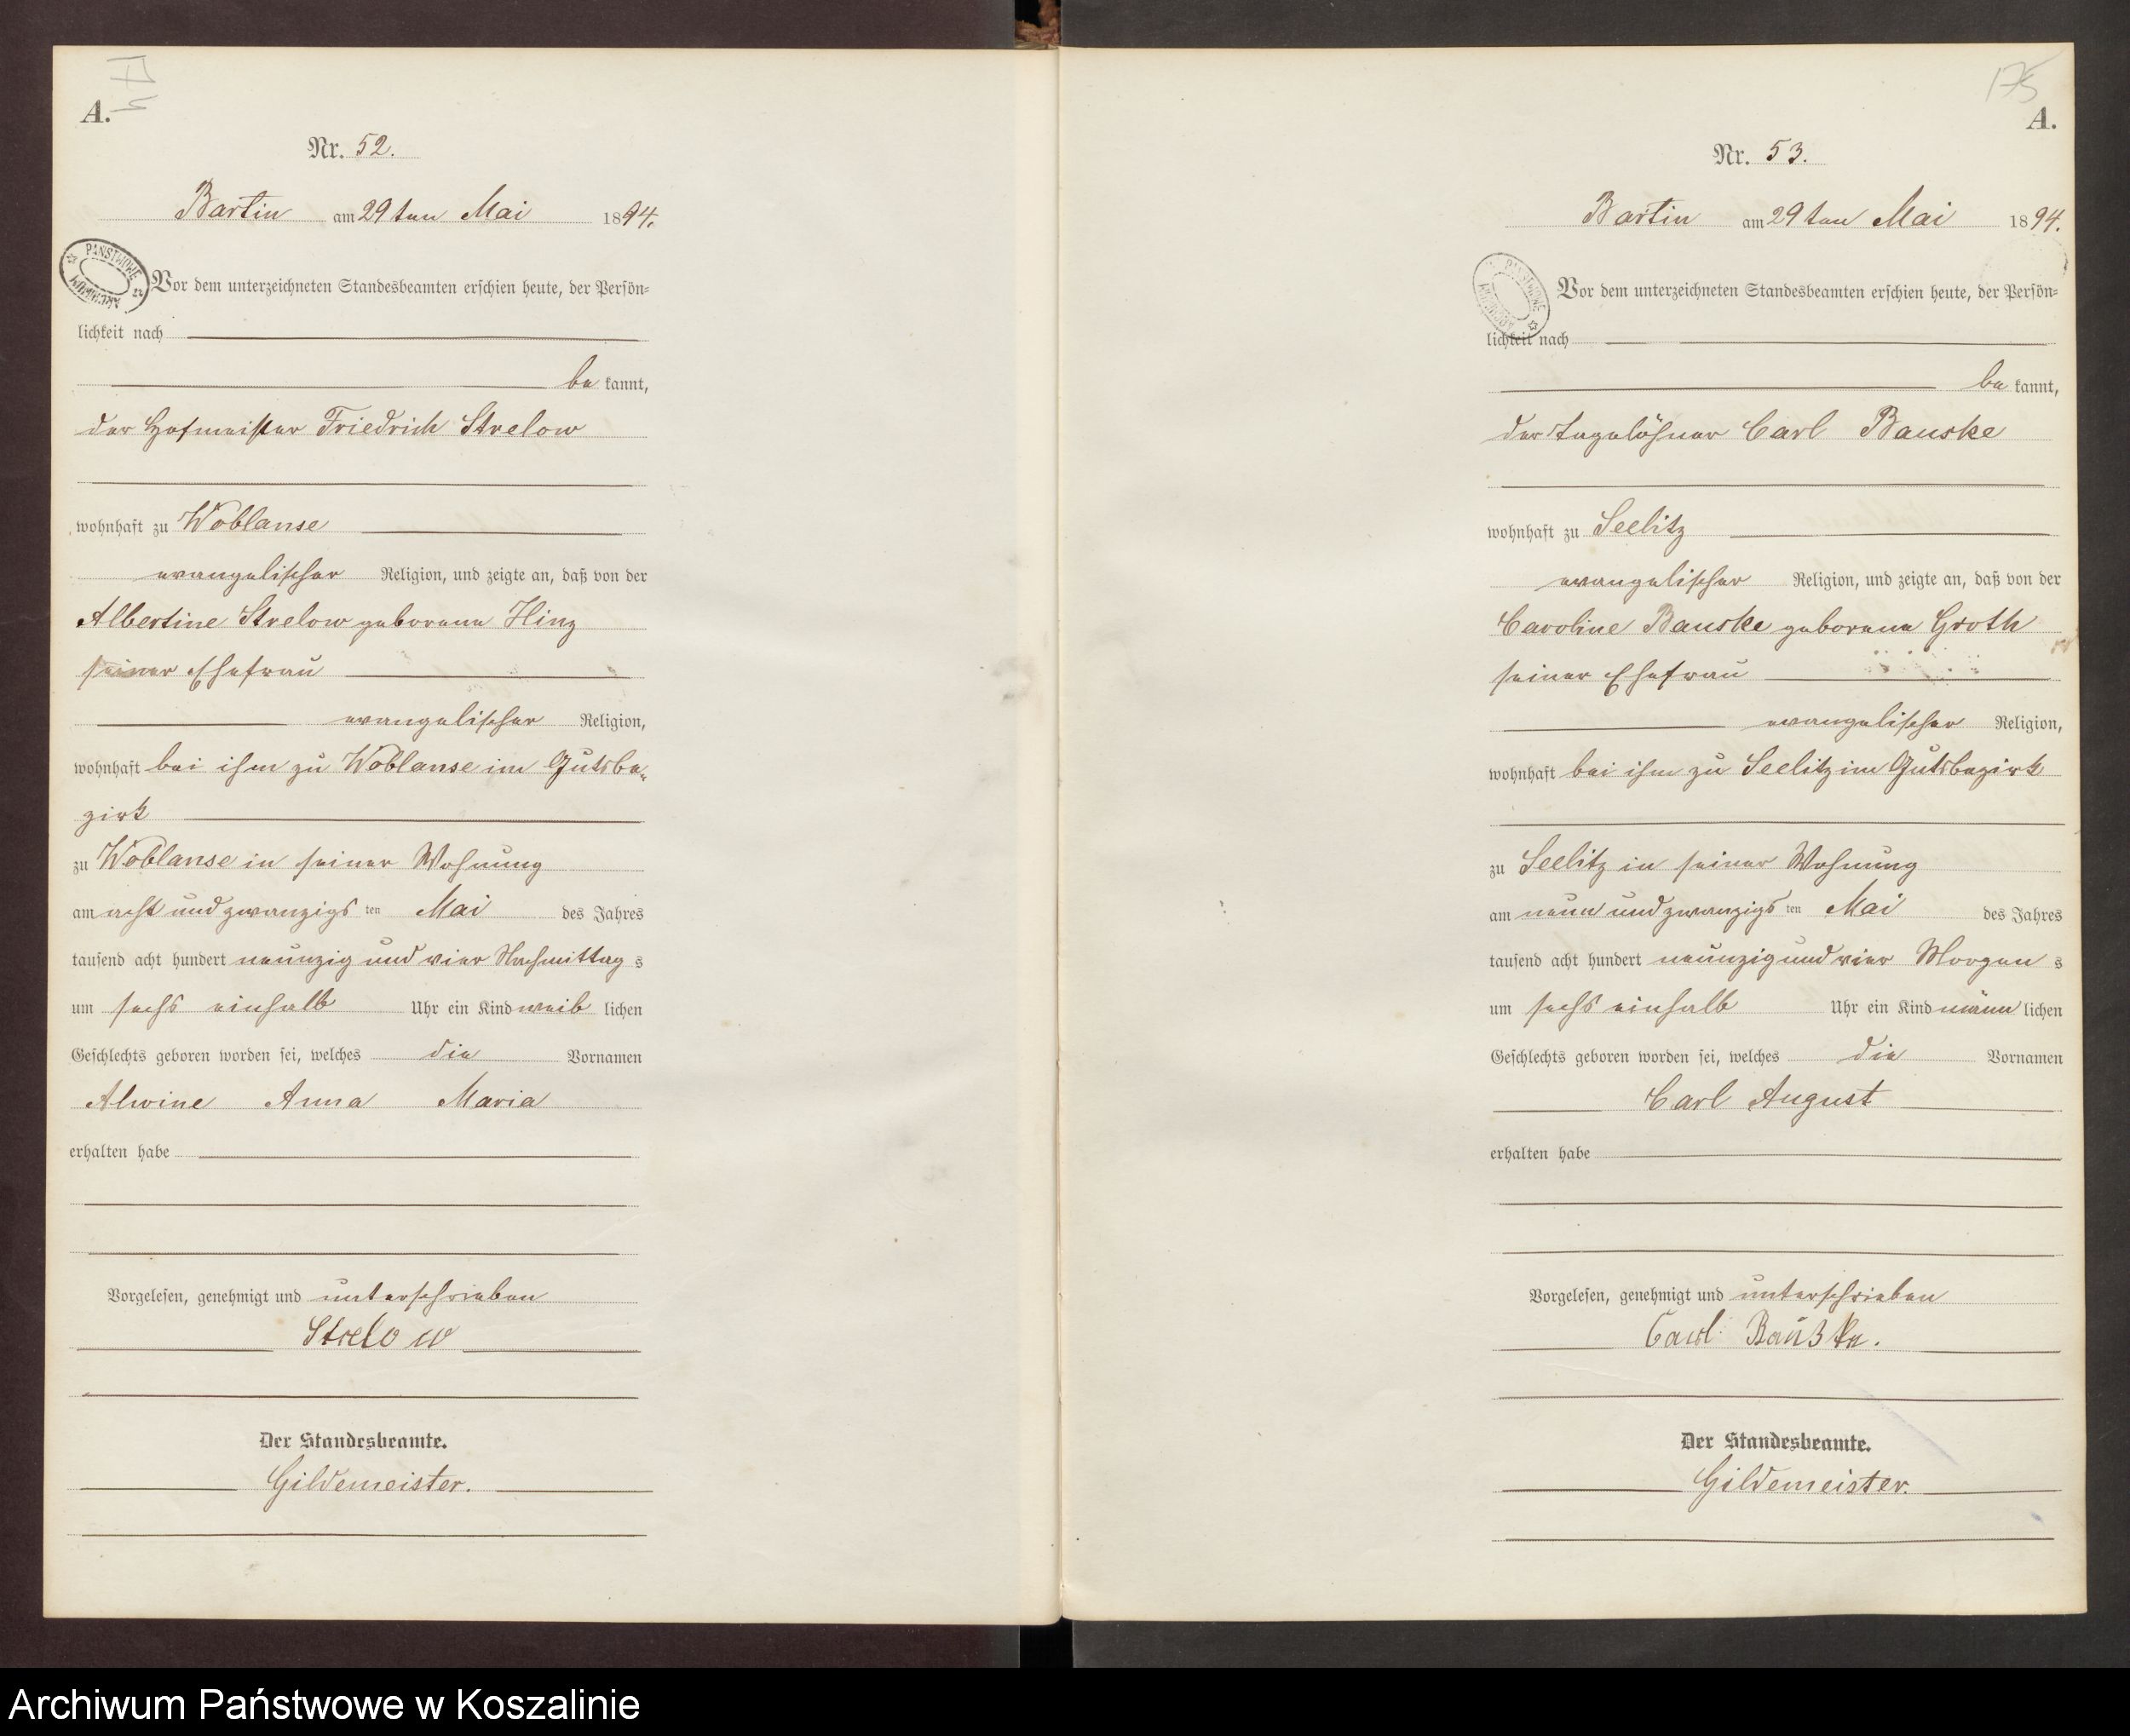 A.
Nr. 52.
Bartin am 29ten Mai 1894.
PAŃSTWOWE
ARCHIWUM
Vor dem unterzeichneten Standesbeamten erschien heute, der Persön=
lichkeit nach
be kannt,
der Hofmeister Friedrich Strelow
wohnhaft zu Woblanse
evangelischer Religion, und zeigte an, daß von der
Albertine Strelow geborene Hinz
seiner Ehefrau
evangelischer Religion,
wohnhaft bei ihm zu Woblanse im Gutsbe-
zirk
zu Woblanse in seiner Wohnung
am acht und zwanzigs ten Mai des Jahres
tausend acht hundert neunzig und vier Nachmittag s
um sechs einhalb Uhr ein Kind weib lichen
Geschlechts geboren worden sei, welches die Vornamen
Alwine Anna Maria
erhalten habe
Vorgelesen, genehmigt und unterschrieben
Strelow
Der Standesbeamte.
Gildemeister.
175
A.
Nr. 53.
Bartin am 29ten Mai 1894.
PAŃSTWOWE
ARCHIWUM
Vor dem unterzeichneten Standesbeamten erschien heute, der Persön=
lichkeit nach
be kannt,
der Tagelöhner Carl Bauske
wohnhaft zu Seelitz
evangelischer Religion, und zeigte an, daß von der
Caroline Bauske geborene Groth
seiner Ehefrau
evangelischer Religion,
wohnhaft bei ihm zu Seelitz im Gutsbezirk
zu Seelitz in seiner Wohnung
am neun und zwanzigs ten Mai des Jahres
tausend acht hundert neunzig und vier Morgen s
um sechs einhalb Uhr ein Kind männ lichen
Geschlechts geboren worden sei, welches die Vornamen
Carl August
erhalten habe
Vorgelesen, genehmigt und unterschrieben
Carl Bauske.
Der Standesbeamte.
Gildemeister.
Archiwum Państwowe w Koszalinie